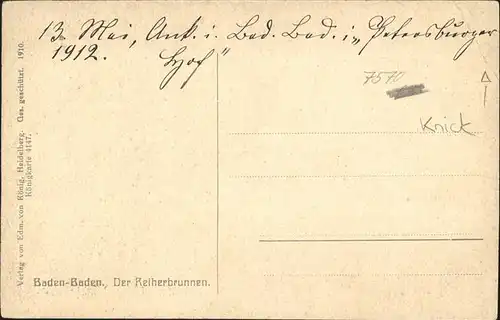 13. Mai, Ank. i. Bad. Bad. i. „Petersburger
1912. Hof"
7570
Knick
Verlag von Edm. von König, Heidelberg. Ges. geschützt. 1910.
Königkarte 4147.
Baden-Baden., Der Reiherbrunnen.